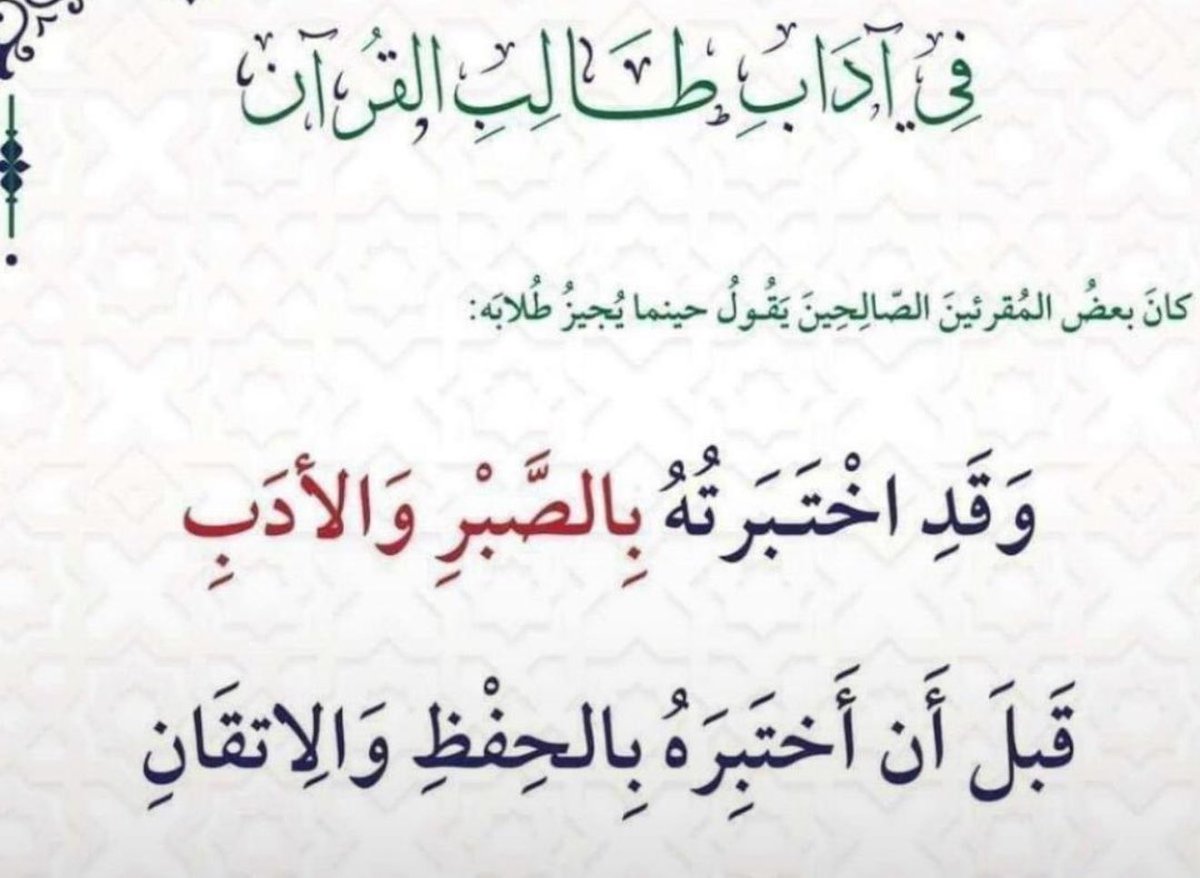 فِي آدَابِ طَالِبِ القُرآن
كانَ بعضُ المُقرئينَ الصّالِحِينَ يَقُولُ حينما يُجيزُ طُلابَه:
وَقَدِ اخْتَبَرتُهُ بِالصَّبْرِ وَالأدَبِ
قَبلَ أَن أَختَبِرَهُ بِالحِفْظِ وَالِاتقَانِ